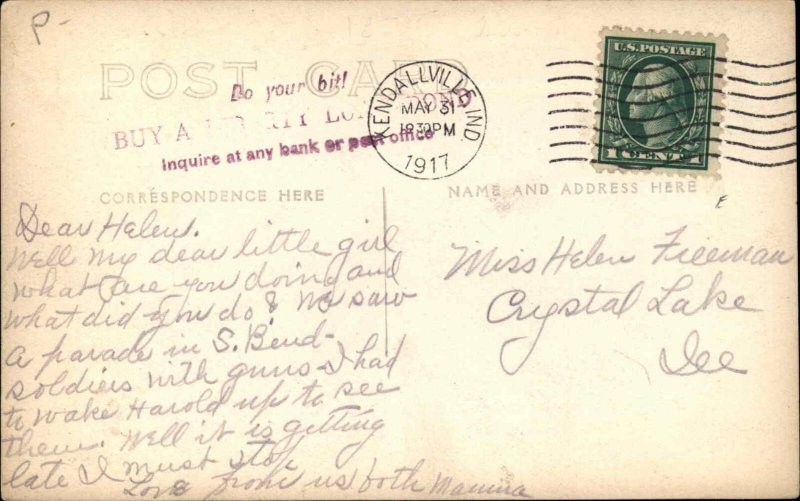 P-
POST CARD
Do your bit!
BUY A LIBERTY LOAN BOND
Inquire at any bank or post office
KENDALLVILLE, IND
MAY 31
1917
U.S. POSTAGE
1 CENT 1
CORRESPONDENCE HERE
NAME AND ADDRESS HERE
Dear Helen.
Well my dear little girl
what are you doing and
what did you do? We saw
a parade in S. Bend-
soldiers with guns - I had
to wake Harold up to see
them. Well it is getting
late I must stop
Love from us both Mamma
Miss Helen Freeman
Crystal Lake
Ill